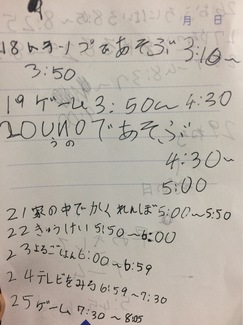 9
月 日
18 トランプであそぶ 3:10〜
3:50
19 ゲーム 3:50〜 4:30
20 UNOであそぶ
うの
4:30〜
5:00
21 家の中でかくれんぼ 5:00〜5:50
22 きゅうけい 5:50〜6:00
23 よるごはん 6:00〜6:59
24 テレビをみる 6:59〜7:30
25 ゲーム 7:30〜8:05